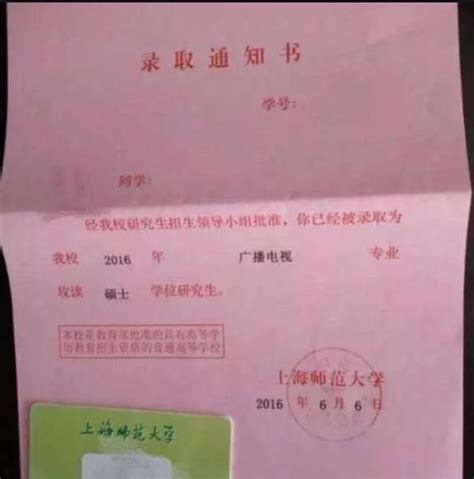 录取通知书
学号:
同学:
经我校研究生招生领导小组批准，你已经被录取为
我校 2016 年 广播电视 专业
攻读 硕士 学位研究生。
本校是教育部批准的具有高等学
历教育招生资格的普通高等学校
上海师范大学
2016 年 6 月 6 日
上海师范大学